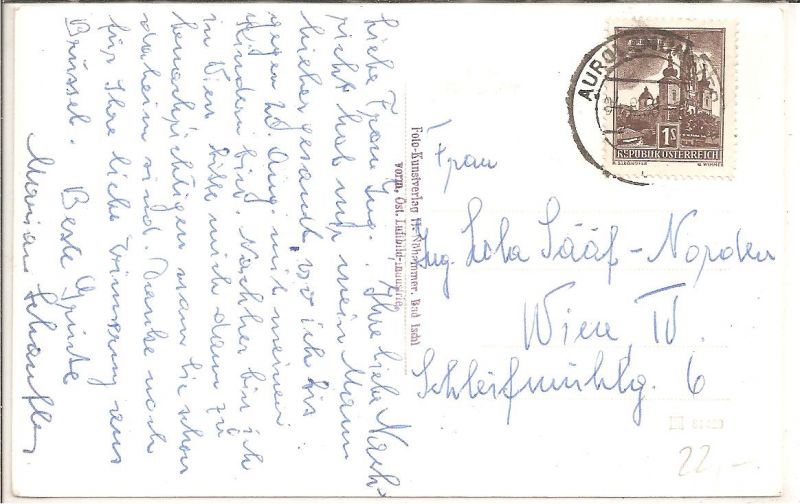 Liebe Frau Ing., Ihre liebe Nach-
richt hat mir mein Mann
hieher gesandt, wo ich bis
gegen 20. Aug. mit meinen
Kindern bin. Nachher bin ich
in Wien bitte mich dann zu
benachrichtigen wann Sie schon
daheim sind. Danke noch
für Ihre liebe Erinnerung aus
Brüssel. Beste Grüsse
Foto-Kunstverlag H. Nöhammer, Bad Ischl
vorm. Öst. Luftbild-Industrie
AUROL
1S
REPUBLIK ÖSTERREICH
Frau
Ing. Lola Sááf-Norden
Wien, IV.
Schleifmühlg. 6
22,-